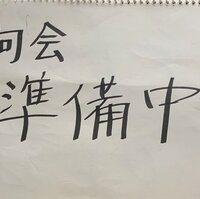 会
準備中